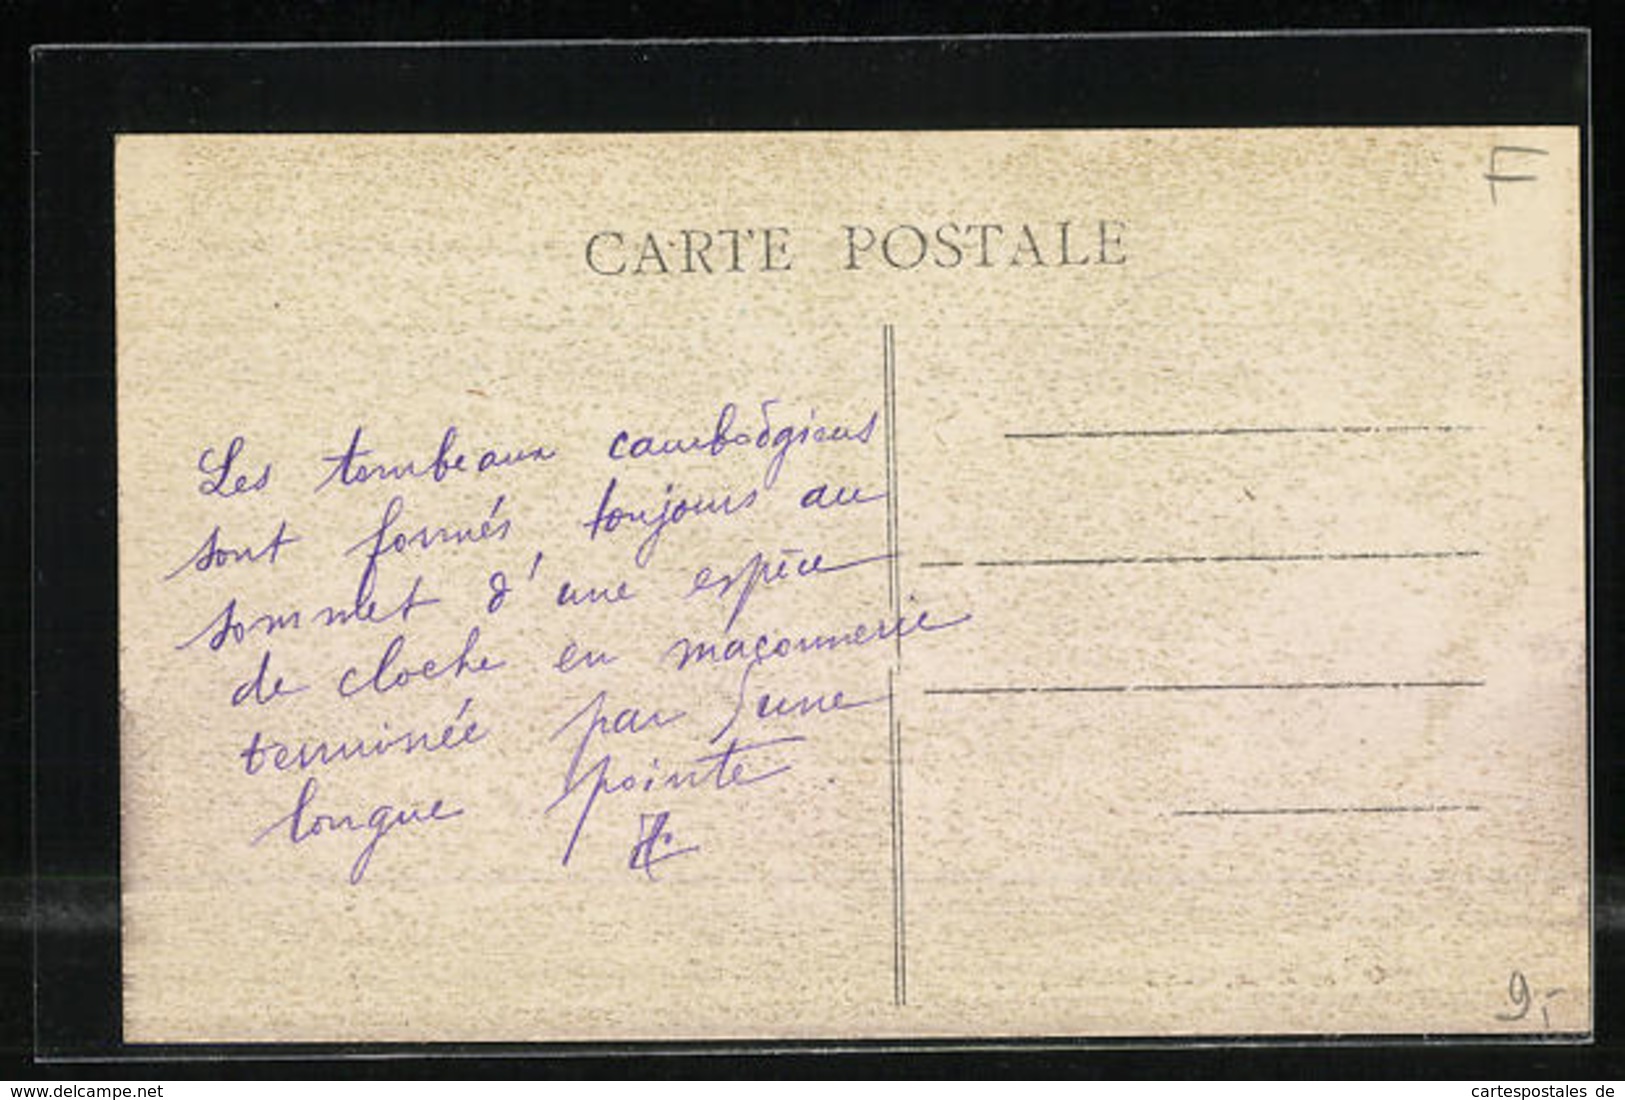 CARTE POSTALE
Les tombeaux cambodgiens
sont formés toujours au
sommet d'une espèce
de cloche en maçonnerie
terminée par une
longue pointe.
9,-
www.delcampe.net
cartespostales de